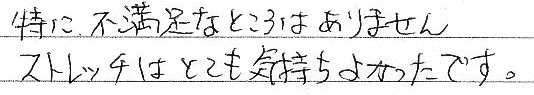 特に不満足なところはありません
ストレッチはとても気持ちよかったです。